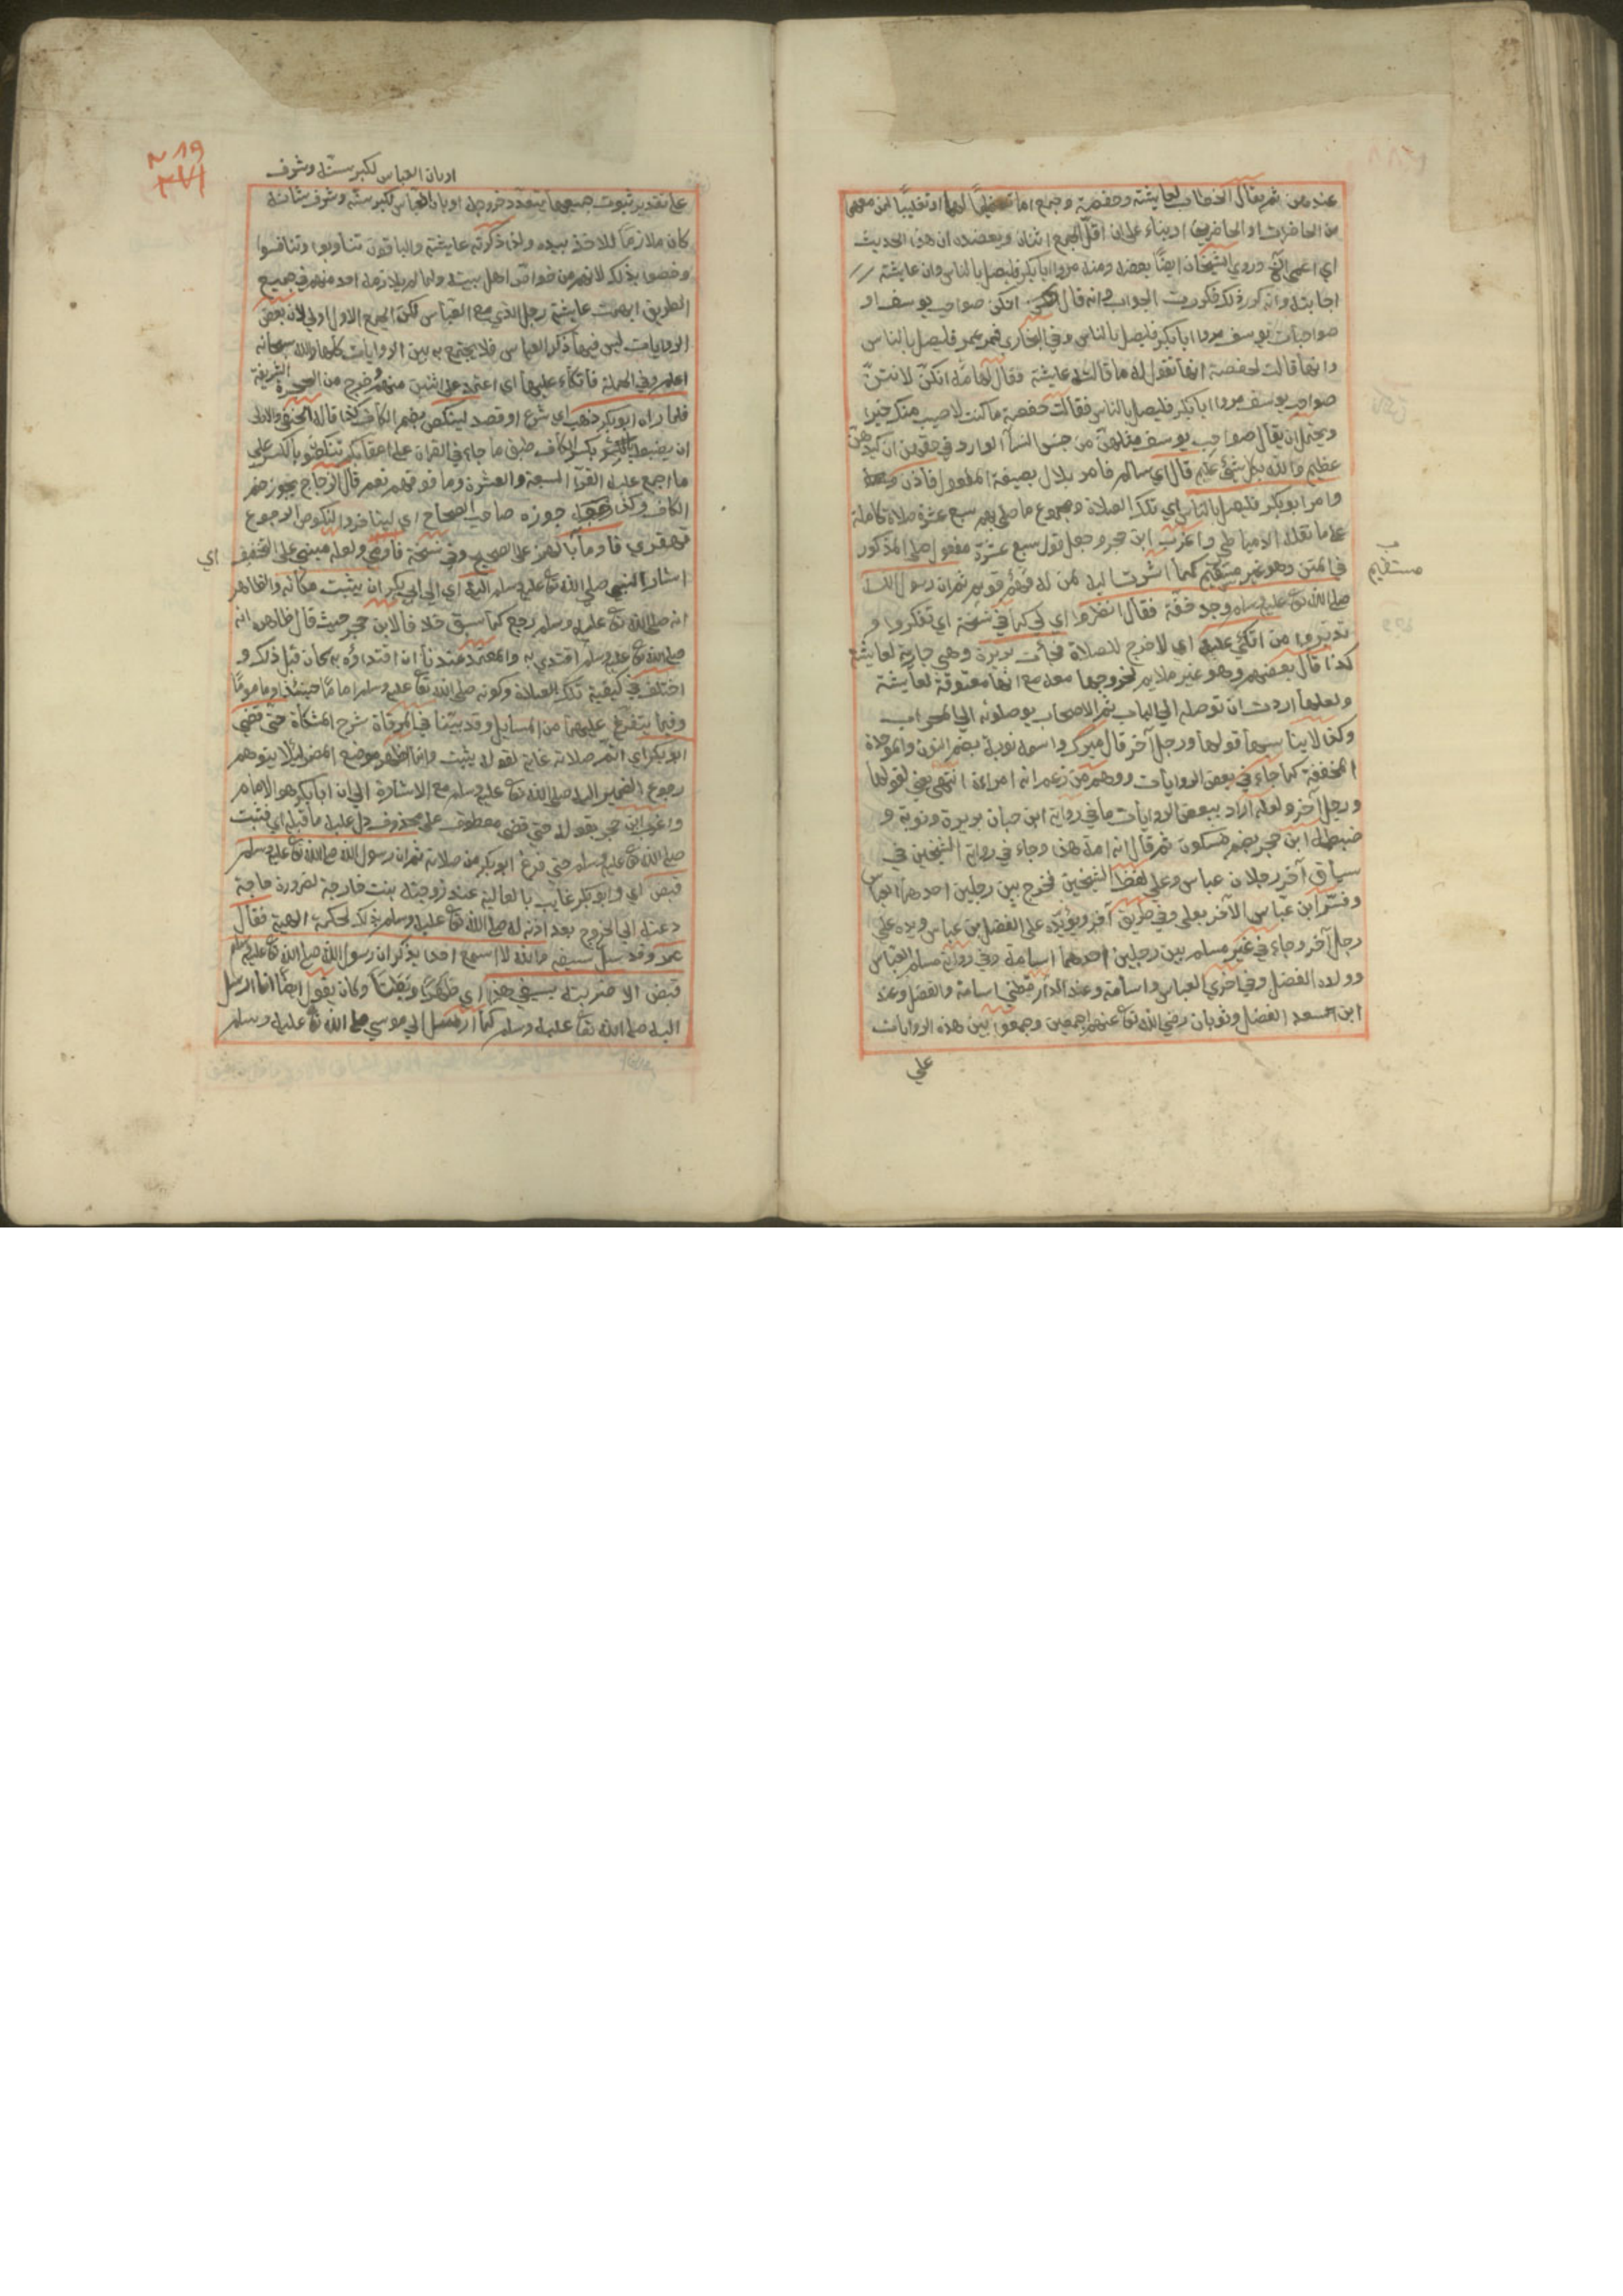 عندهن ثم يقال الخطاب لعايشة وحفصة وجمع اما تعظيمًا لهما او تغليبًا لمن معهما
من الحاضرات او الحاضرين او بناء على ان اقل الجمع اثنان ويعضده ان هذا الحديث
اي اغمى الخ وروي الشيخان ايضًا بعضه ومنه مروا ابا بكر فليصل بالناس وان عايشة
اجابته وانه كرر ذلك فكررت الجواب وانه قال انكن صواحب يوسف او
صواحبات يوسف مروا ابا بكر فليصل بالناس وفي البخاري فمر عمر فليصل بالناس
وانها قالت لحفصة انها تقول له ما قالته عايشة فقال لها مه انكن لانتن
صواحب يوسف مروا ابا بكر فليصل بالناس فقالت حفصة ما كنت لاصيب منك خيرا
ويحتمل ان يقال صواحب يوسف مثلهن من جنس النسآ الوارد في حقهن ان كيدهن
عظيم والله بكل شيء عليم قال اي سالم فامر بلال بصيغة المفعول فاذن
وامر ابو بكر فليصل بالناس اي تلك الصلاة ومجموع ما صلى بهم سبع عشرة صلاة كاملة
على ما نقله الدمياطي واغرب ابن حجر وجعل قول سبع عشرة مفعول صلى المذكور
في المتن وهو غير مستقيم كما اشرت اليه لمن له فهم قويم ثم ان رسول الله
مستقيم
صلى الله تع عليه وسلم وجد خفة فقال انظروا اي لي كما في نسخة اي تفكروا و
تدبروا من اتكئ عليه اي لاخرج للصلاة فجأت بريرة وهي جارية لعايشة
كذا قال بعضهم وهو غير ملايم لخروجها معه مع انها معتوقة لعايشة
ولعلها اردت ان توصله الى الباب ثم الاصحاب يوصلونه الي المحراب
وكذا لاينا سبها قولها ورجل آخر قال ميرك واسمه نوبة بضم النون والموحدة
المخففة كما جاء في بعض الروايات ووهم من زعم انه امراة انتهى يعني لقولها
ورجل آخر ولعله اراد ببعض الروايات ما في رواية ابن حبان بريرة ونوبة و
ضبطه ابن حجر بضم فسكون ثم قال انه امة هذا وجاء في رواية الشيخين في
سياق آخر رجلان عباس وعلي لفظ الشيخين فخرج بين رجلين احدهما العباس
وفسر ابن عباس الآخر بعلي وفي طريق آخر ويؤيده على الفضل بن عباس ويده على
رجل آخر وجاء في غير مسلم بين رجلين احدهما اسامة وفي رواية مسلم العباس
وولده الفضل وفي اخري العباس واسامة وعند الدار قطني اسامة والفضل وعند
ابن سعد الفضل وثوبان رضي الله تع عنهم اجمعين وجمعوا بين هذه الروايات
علي
اوبان العباس لكبر سنه وشرف
على تقدير ثبوت جميعها بتعدد خروجه اوبان العباس لكبر سنه وشرف شانه
كان ملازمًا للاخذ بيده ولذا ذكرته عايشة والباقون تناوبوا وتنافسوا
وخصوا بذلك لانهم من خواص اهل بيته ولما لم يلازمه احد منهم في جميع
الطريق ابهمت عايشة رجل الذي مع العباس لكن الجمع الاول اولي لان بعض
الروايات ليس فيها ذكر العباس فلا يجتمع به بين الروايات كلها والله سبحانه
اعلم وفي الجملة فاتكاء عليهما اي اعتمد على اثنين منهم وخرج من الحجرة الشريفة
فلما راه ابو بكر ذهب اي شرع او قصد لينكص بضم الكاف كذا قاله الحنفي والاولى
ان يضبط بكسر الكاف طبق ما جاء في القراة على اعقابكم تنكصون بالكسر على
ما اجمع عليه القرآ السبعة والعشرة وما فوقهم نعم قال الزجاج يجوز ضم
الكاف وكذا جوزه صاحب الصحاح اي ليتاخر والنكوص الرجوع
قهقري فاومأ بالهمز على الصحيح وفي نسخة فاومى ولعله مبني على التخفيف اي
اشار النبي صلى الله تع عليه وسلم اليه اي الى ابي بكر ان يثبت مكانه والظاهر
انه صلى الله تع عليه وسلم رجع كما سبق خلافا لابن حجر حيث قال ظاهره انه
صلى الله تع عليه وسلم اقتدي به والمعتمد عندنا ان اقتداؤه به كان قبل ذلك و
اختلف في كيفية تلك الصلاة وكونه صلى الله تع عليه وسلم اماما حينئذ او ماموما
وفيما يتفرع عليهما من المسايل وقد بيتنا في المرقاة شرح المشكاة حتى قضي
ابو بكر اي اتم صلاته غاية لقوله يثبت وانما اظهر موضع المضمر لئلا يتوهم
رجوع الضمير اليه صلى الله تع عليه وسلم مع الاشارة الى ان ابا بكر هو الامام
واغرب ابن حجر بقوله حتي قضى معطوف على محذوف دل عليه ما قبله اي فثبت
صلى الله تع عليه وسلم حتي فرغ ابو بكر من صلاته ثم ان رسول الله صلى الله تع عليه وسلم
قبض اي وابو بكر غايب بالعالية عند زوجته بنت خارجة لضرورة حاجة
دعته الى الخروج بعد اذنه له صلى الله تع عليه وسلم بذلك لحكمة الهية فقال
عمر وقد سل سيفه والله لا اسمع احدا يذكر ان رسول الله صلى الله تع عليه وسلم
قبض الا ضربته بسيفي هذا اي وكان يقول ايضًا انما ارسل
اليه صلى الله تعا عليه وسلم كما ارسل الي موسي صلى الله تع عليه وسلم